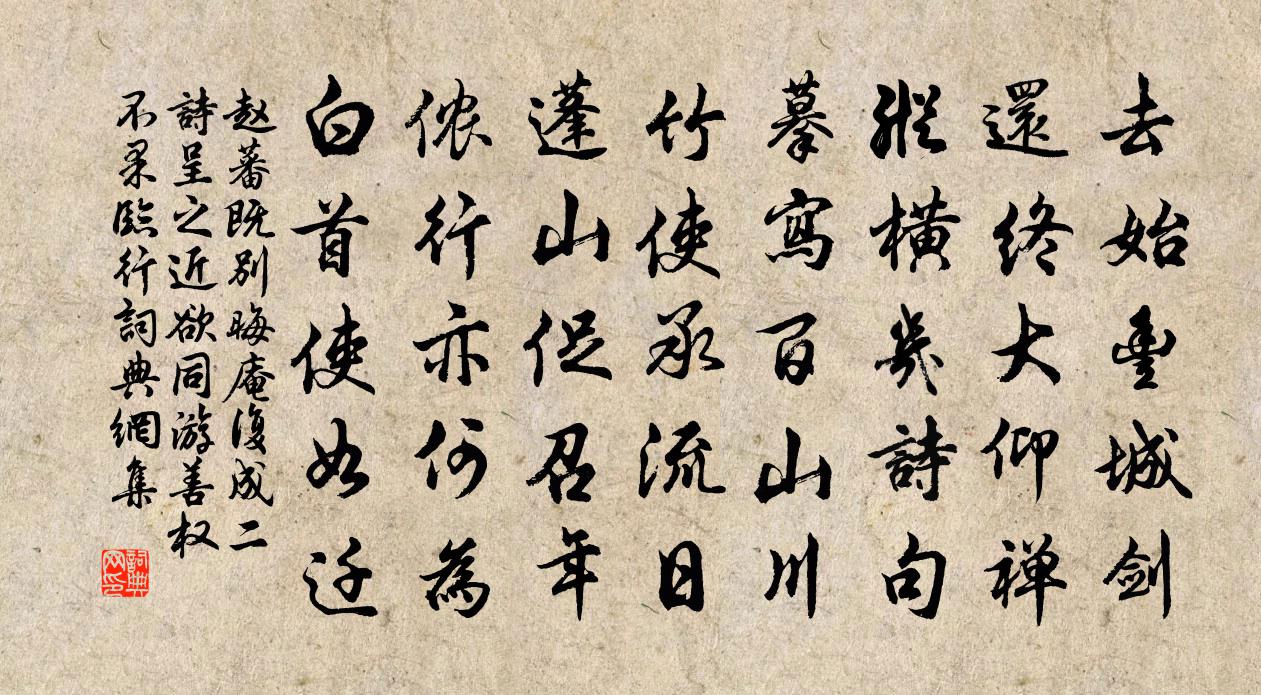 去始豐城剑
還终大仰禅
縱橫幾詩句
摹寫百山川
竹使承流日
蓬山促召年
侬行亦何為
白首使如迁
赵蕃既别晦庵復成二
詩呈之近欲同游善权
不果臨行詞典網集
詞典
网印